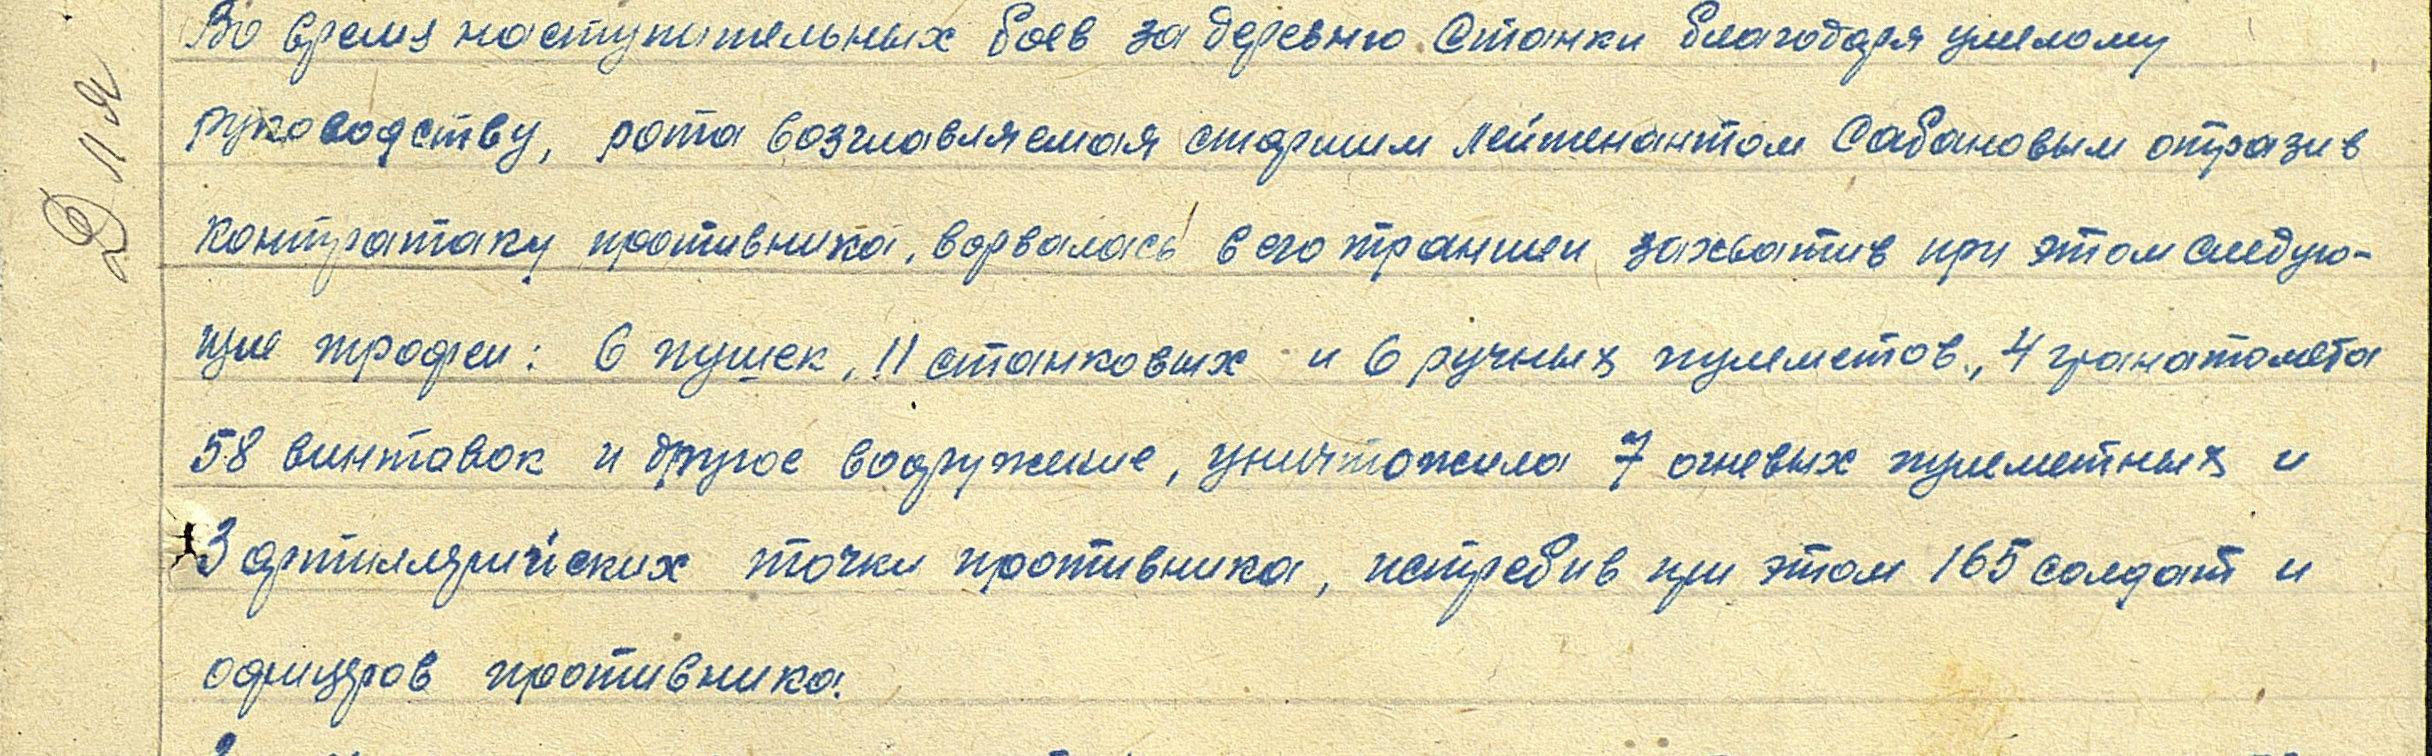 Во время наступательных боев за деревню Станки благодаря умелому
руководству, рота возглавляемая старшим лейтенантом Сабановым отразив
контратаку противника, ворвалась в его траншеи захватив при этом следую-
щие трофеи: 6 пушек, 11 станковых и 6 ручных пулеметов, 4 гранатомета
58 винтовок и другое вооружение, уничтожила 7 огневых пулеметных и
3 артиллерийских точки противника, истребив при этом 165 солдат и
офицеров противника.
Для